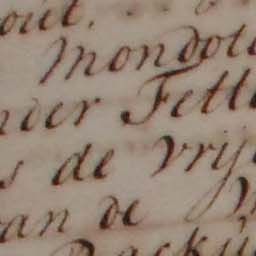 out.
Mondol
nder Fette
s de vrij
van de